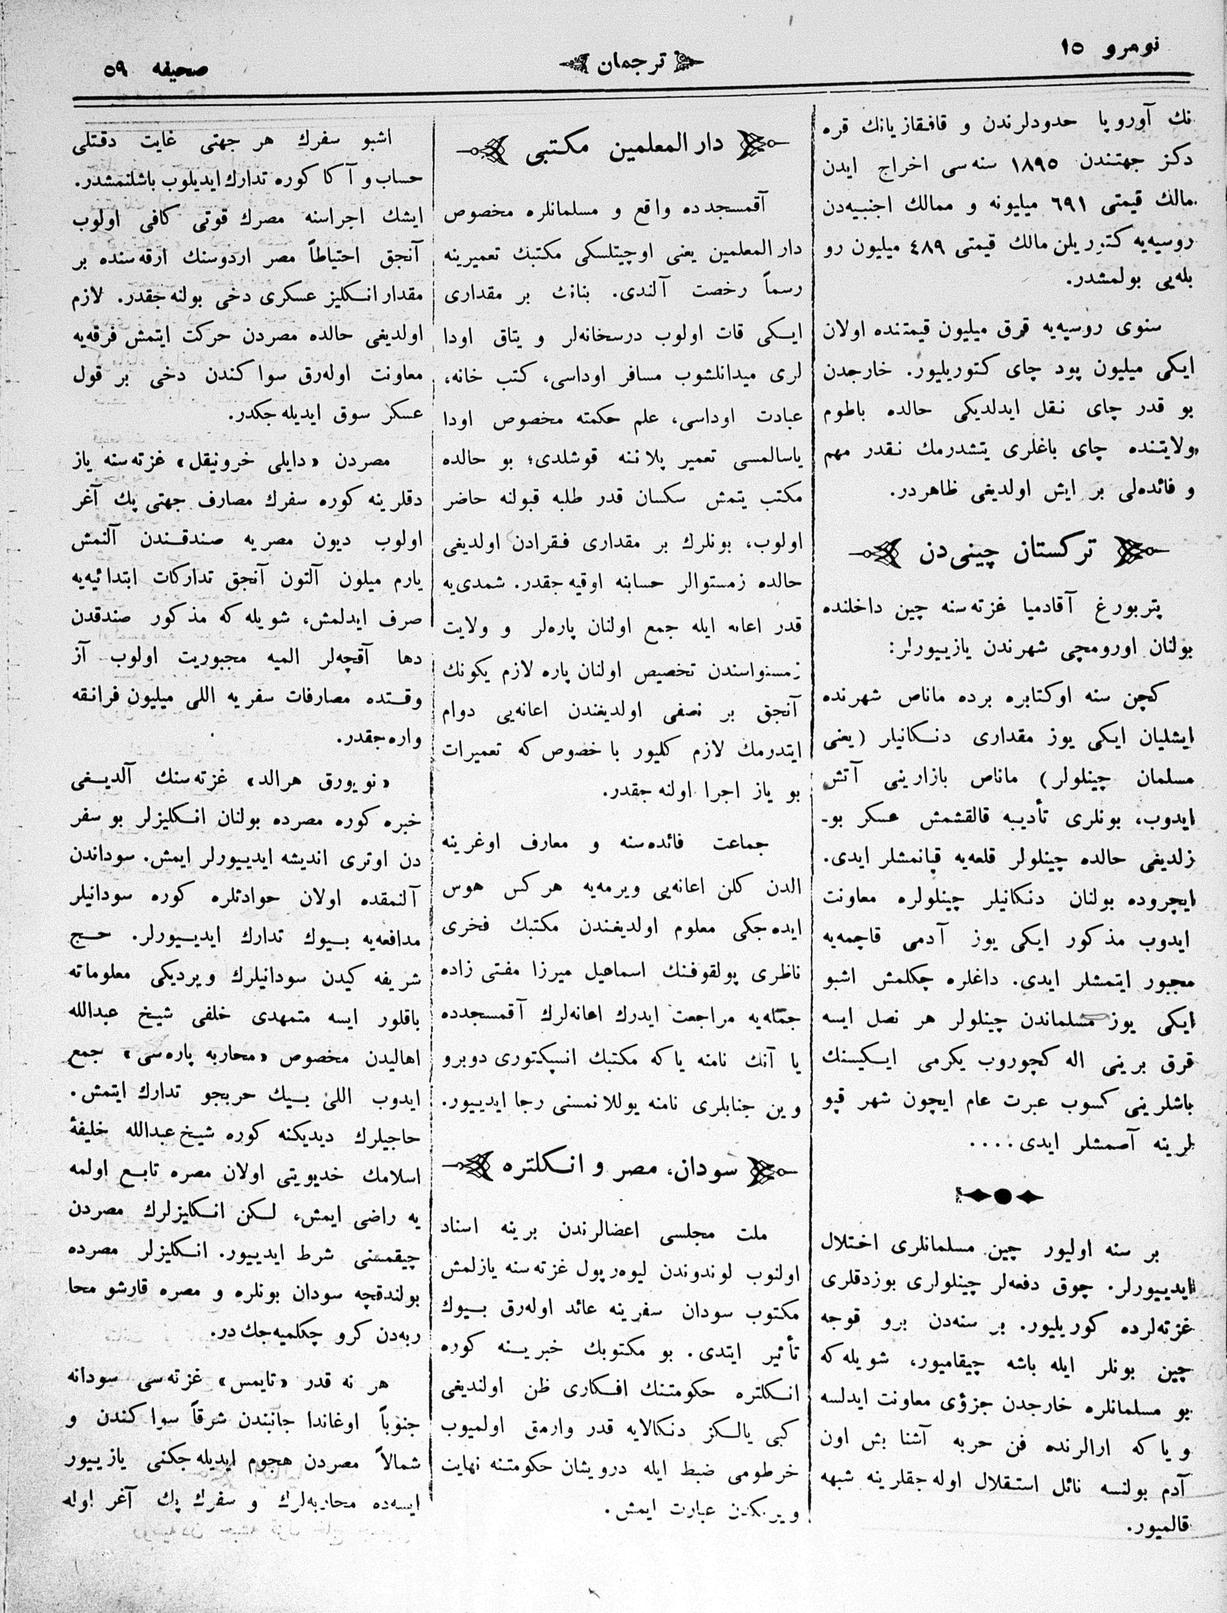 نومرو ١٥
ترجمان
صحیفه ٥٩
نك آوروپا حدودلرندن و قافقازیانك قره
دكز جهتندن ١٨٩٥ سنه‌سی اخراج ایدن
مالك قیمتی ٦٩١ میلیونه و ممالك اجنبیه‌دن
روسیه‌یه كتوریلن مالك قیمتی ٤٨٩ میلیون رو
بله‌یی بولمشدر.
سنوی روسیه‌یه قرق میلیون قیمتنده اولان
ایكی میلیون پود چای كتوریلیور. خارجدن
بو قدر چای نقل ایدلدیكی حالده باطوم
ولایتنده چای باغلری یتشدرمك نقدر مهم
و فائده‌لی بر ایش اولدیغی ظاهردر.
تركستان چینی‌دن
پتربورغ آقادمیا غزته‌سنه چین داخلنده
بولنان اورومچی شهرندن یازییورلر:
كچن سنه اوكتابره برده ماناص شهرنده
ایشلیان ایكی یوز مقداری دنكانیلر (یعنی
مسلمان چینلولر) ماناص بازارینی آتش
ایدوب، بونلری تأدیبه قالقشمش عسكر بو-
زلدیغی حالده چینلولر قلعه‌یه قپانمشلر ایدی.
ایچروده بولنان دنكانیلر چینلولره معاونت
ایدوب مذكور ایكی یوز آدمی قاچمه‌یه
مجبور ایتمشلر ایدی. داغلره چكلمش اشبو
ایكی یوز مسلماندن چینلولر هر نصل ایسه
قرق برینی اله كچوروب یكرمی ایكیسنك
باشلرینی كسوب عبرت عام ایچون شهر قپو
لرینه آصمشلر ایدی....
بر سنه اولیور چین مسلمانلری اختلال
ایدییورلر. چوق دفعه‌لر چینلولری بوزدقلری
غزته‌لرده كوریلیور. بر سنه‌دن برو قوجه
چین بونلر ایله باشه چیقامیور، شویله‌كه
بو مسلمانلره خارجدن جزؤی معاونت ایدلسه
و یاكه ارالرنده فن حربه آشنا بش اون
آدم بولنسه نائل استقلال اوله‌جقلرینه شبهه
قالمیور.
دار المعلمین مكتبی
آقمسجدده واقع و مسلمانلره مخصوص
دار المعلمین یعنی اوچیتلسكی مكتبك تعمیرینه
رسماً رخصت آلندی. بنانك بر مقداری
ایكی قات اولوب درسخانه‌لر و یتاق اودا
لری میدانلشوب مسافر اوداسی، كتب خانه،
عبادت اوداسی، علم حكمته مخصوص اودا
یاسالمسی تعمیر پلاننه قوشلدی؛ بو حالده
مكتب یتمش سكسان قدر طلبه قبولنه حاضر
اولوب، بونلرك بر مقداری فقرادن اولدیغی
حالده زمستوالر حسابنه اوقیه‌جقدر. شمدی‌یه
قدر اعانه ایله جمع اولنان پاره‌لر و ولایت
زمستواسندن تخصیص اولنان پاره لازم یكونك
آنجق بر نصفی اولدیغندن اعانه‌یی دوام
ایتدرمك لازم كلیور باخصوص‌كه تعمیرات
بو یاز اجرا اولنه‌جقدر.
جماعت فائده‌سنه و معارف اوغرینه
الدن كلن اعانه‌یی ویرمه‌یه هر كس هوس
ایده‌جكی معلوم اولدیغندن مكتبك فخری
ناظری پولقوفنك اسماعیل میرزا مفتی زاده
جمله‌یه مراجعت ایدرك اعانه‌لرك آقمسجدده
یا آنك نامنه یاكه مكتبك انسپكتوری دوبرو
وین جنابلری نامنه یوللانمسنی رجا ایدییور.
سودان، مصر و انكلتره
ملت مجلسی اعضالرندن برینه اسناد
اولنوب لوندوندن لیوه‌رپول غزته‌سنه یازلمش
مكتوب سودان سفرینه عائد اوله‌رق بیوك
تأثیر ایتدی. بو مكتوبك خبرینه كوره
انكلتره حكومتنك افكاری ظن اولندیغی
كبی یالكز دنكالایه قدر وارمق اولمیوب
خرطومی ضبط ایله درویشان حكومتنه نهایت
ویرمكدن عبارت ایمش.
اشبو سفرك هر جهتی غایت دقتلی
حساب و آكا كوره تدارك ایدیلوب باشلنمشدر.
ایشك اجراسنه مصرك قوتی كافی اولوب
آنجق احتیاطاً مصر اردوسنك ارقه‌سنده بر
مقدار انكلیز عسكری دخی بولنه‌جقدر. لازم
اولدیغی حالده مصردن حركت ایتمش فرقه‌یه
معاونت اوله‌رق سواكندن دخی بر قول
عسكر سوق ایدیله‌جكدر.
مصردن «دایلی خرونیقل» غزته‌سنه یاز
دقلرینه كوره سفرك مصارف جهتی پك آغر
اولوب دیون مصریه صندقندن آلنمش
یارم میلون آلتون آنجق تداركات ابتدائیه‌یه
صرف ایدلمش، شویله‌كه مذكور صندقدن
دها آقچه‌لر المیه مجبوریت اولوب آز
وقتده مصارفات سفریه اللی میلیون فرانقه
واره‌جقدر.
«نویورق هرالد» غزته‌سنك آلدیغی
خبره كوره مصرده بولنان انكلیزلر بو سفر
دن اوتری اندیشه ایدییورلر ایمش. سوداندن
آلنمقده اولان حوادثلره كوره سودانیلر
مدافعه‌یه بیوك تدارك ایدییورلر. حج
شریفه كیدن سودانیلرك ویردیكی معلوماته
باقلور ایسه متمهدی خلفی شیخ عبدالله
اهالیدن مخصوص «محاربه پاره‌سی» جمع
ایدوب اللی بیك حربجو تدارك ایتمش.
حاجیلرك دیدیكنه كوره شیخ عبدالله خلیفهٔ
اسلامك خدیویتی اولان مصره تابع اولمه
یه راضی ایمش، لكن انكلیزلرك مصردن
چیقمسنی شرط ایدییور. انكلیزلر مصرده
بولندقچه سودان بونلره و مصره قارشو محا
ربه‌دن كرو چكلمیه‌جك‌در.
هر نه قدر «تایمس» غزته‌سی سودانه
جنوباً اوغاندا جانبندن شرقاً سواكندن و
شمالاً مصردن هجوم ایدیله‌جكنی یازییور
ایسه‌ده محاربه‌لرك و سفرك پك آغر اوله